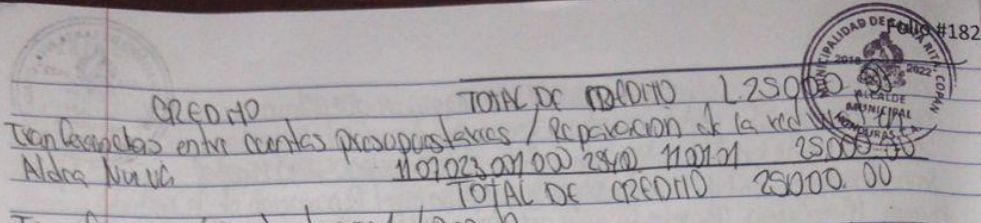 Folio #182
MUNICIPALIDAD DE SANTA RITA, COPAN
2018 2022
ALCALDE
MUNICIPAL
HONDURAS, C.A.
TOTAL DE CREDITO L.25000.00
CREDITO
Tranferencias entre cuentas presupuestarias / Reparacion de la red
Aldea Nueva 11 07 023 001 000 23400 11 001-01 25000.00
TOTAL DE CREDITO 25000.00